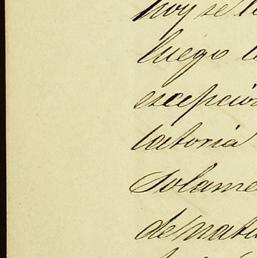 hoy se
luego
escepción
latoria
solame
de natu